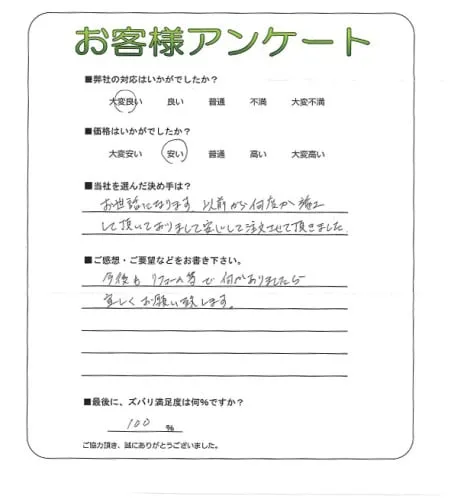 お客様アンケート
■弊社の対応はいかがでしたか？
大変良い 良い 普通 不満 大変不満
■価格はいかがでしたか？
大変安い 安い 普通 高い 大変高い
■当社を選んだ決め手は？
お世話になります。以前から何度か施工
して頂いておりまして安心して注文させて頂きました
■ご感想・ご要望などをお書き下さい。
今後もリフォーム等で何かありましたら
宜しくお願い致します。
■最後に、ズバリ満足度は何%ですか？
100 %
ご協力頂き、誠にありがとうございました。